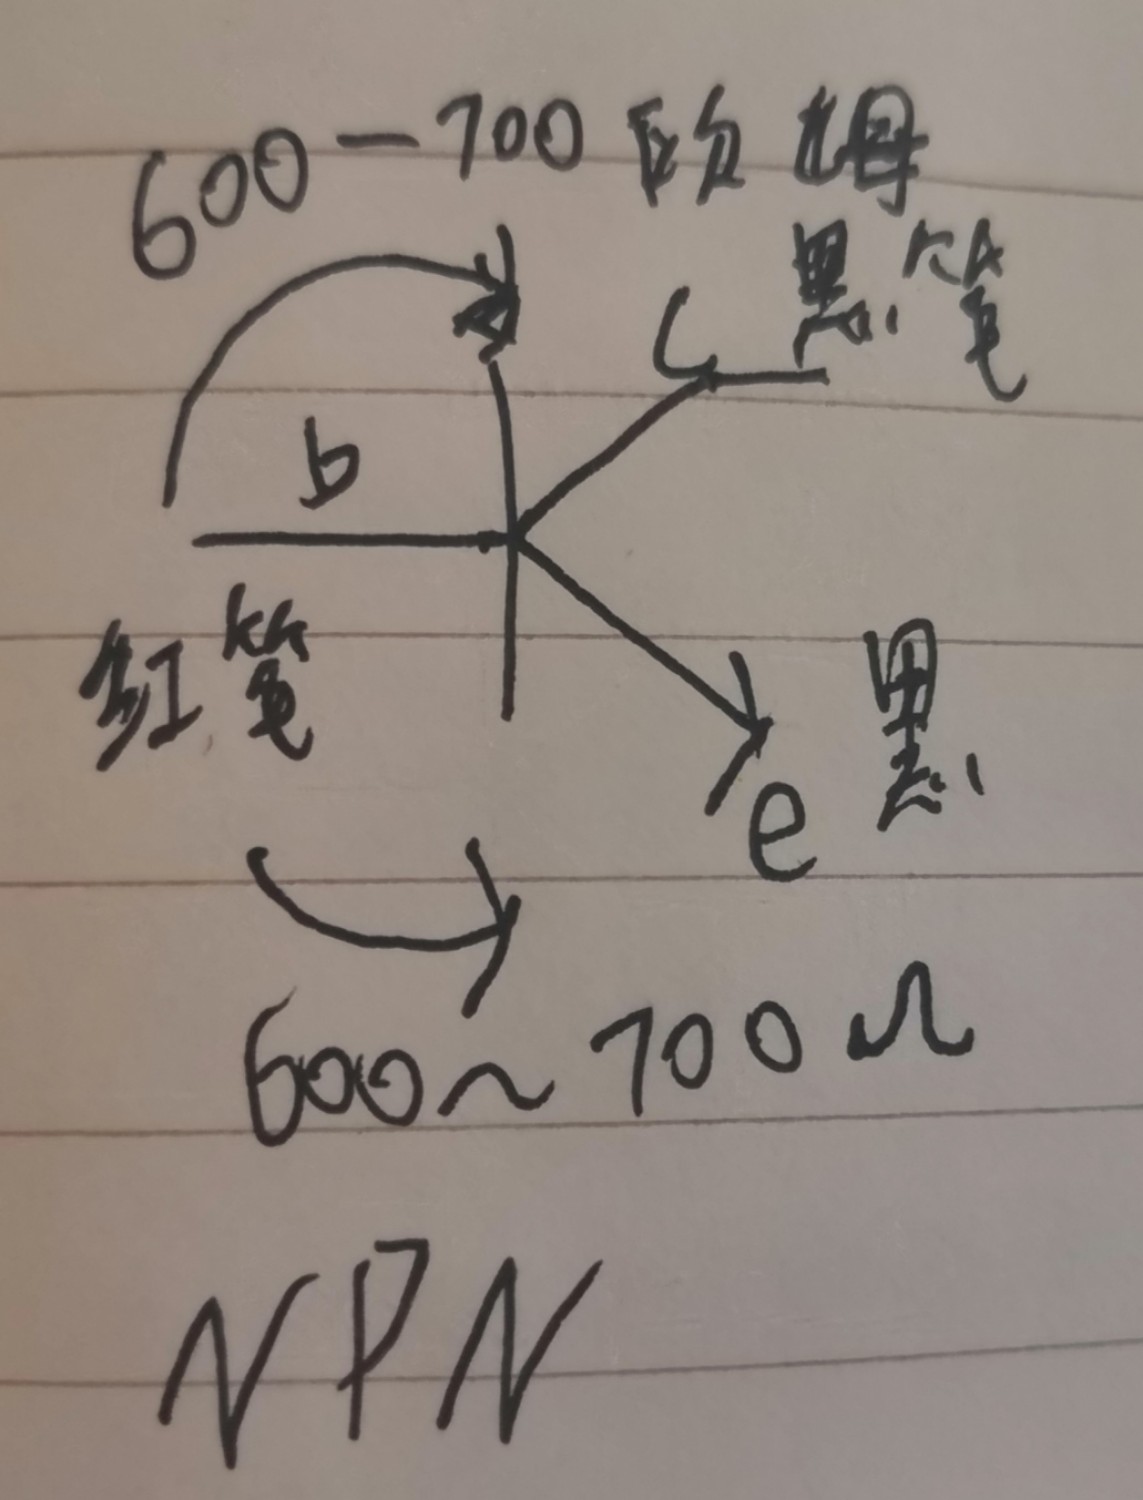 600-700欧姆
c 黑笔
b
红笔
黑
e
600~700Ω
NPN